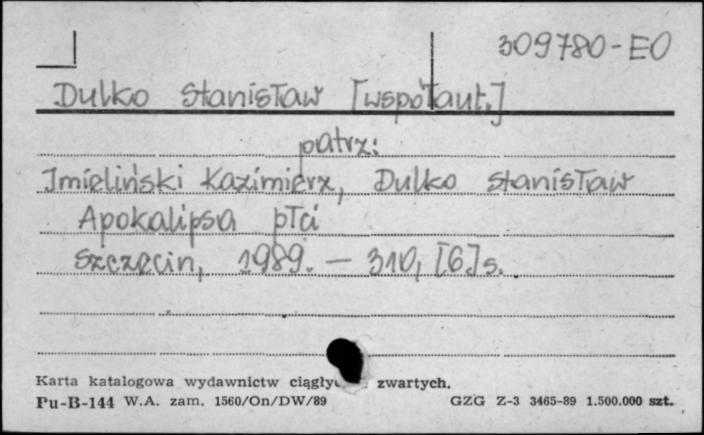 309780-EO
Dulko Stanisław [współaut.]
patrz:
Imieliński Kazimierz, Dulko Stanisław
Apokalipsa płci
Szczecin, 1989. — 310, [6] s.
Karta katalogowa wydawnictw zwartych.
Pu-B-144 W.A. zam. 1560/On/DW/89 GZG Z-3 3465-89 1.500.000 szt.